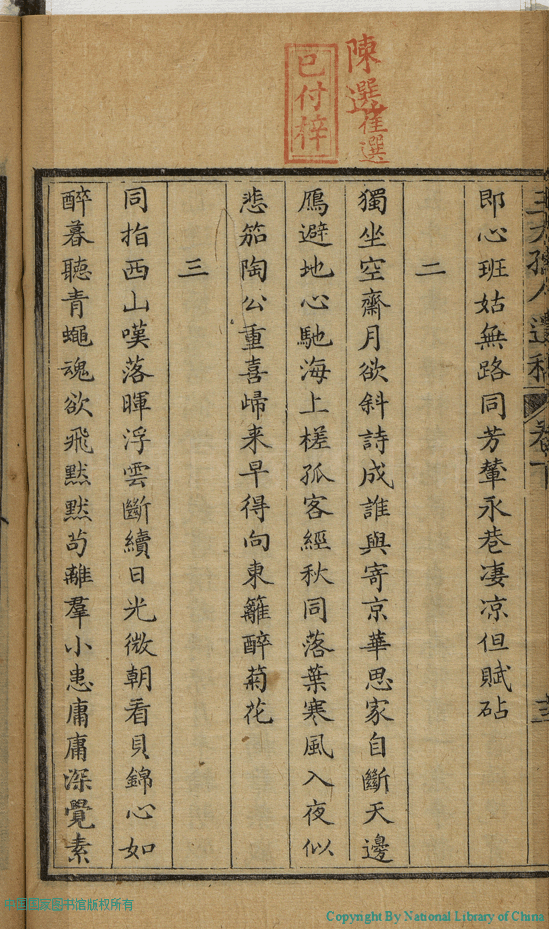 陳選
隹選
已付梓
卷下
即心班姑無路同芳輦永巷凄凉但賦砧
二
獨坐空齋月欲斜詩成誰與寄京華思家自斷天邊
鴈避地心馳海上槎孤客經秋同落葉寒風入夜似
悲笳陶公重喜歸来早得向東籬醉菊花
三
同指西山嘆落暉浮雲斷續日光微朝看貝錦心如
醉暮聽青蠅魂欲飛黙黙苟離羣小患庸庸深覺素
中国国家图书馆版权所有
Copyright By National Library of China